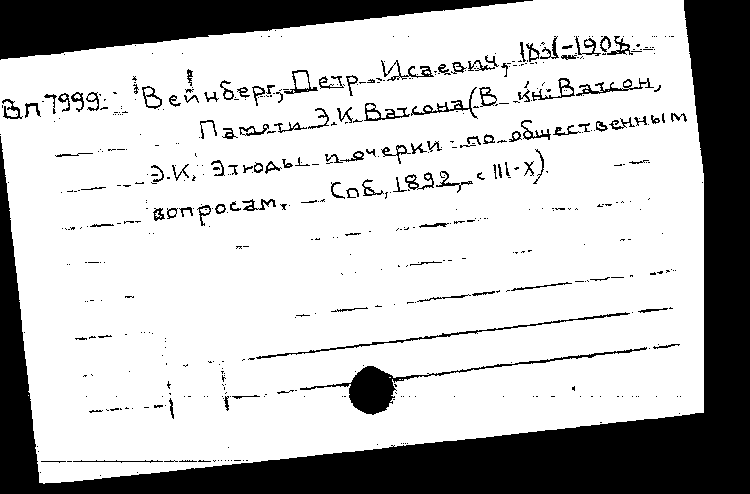 Вп 7999. Вейнберг, Петр Исаевич, 1831-1908.
Памяти Э.К. Ватсона (В кн: Ватсон,
Э.К. Этюды и очерки по общественным
вопросам. - Спб, 1892, с III-X).